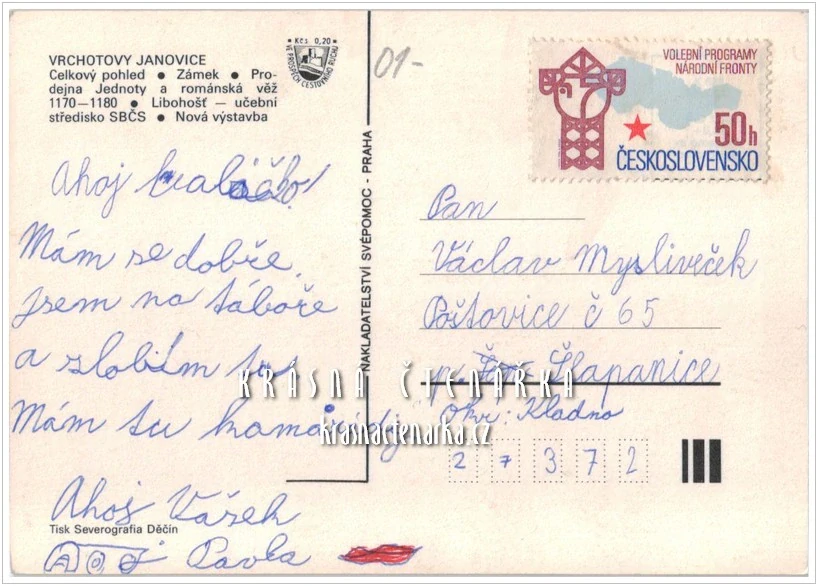 VRCHOTOVY JANOVICE
Celkový pohled ● Zámek ● Pro-
dejna Jednoty a románská věž
1170—1180 ● Libohošť — učební
středisko SBČS ● Nová výstavba
Kčs 0,20
VE PROSPĚCH CESTOVNÍHO RUCHU
01-
VOLEBNÍ PROGRAMY
NÁRODNÍ FRONTY
50h
ČESKOSLOVENSKO
Ahoj
Mám se dobře.
jsem na táboře
a zlobím
Mám tu kamarády
Ahoj Vašek
Ahoj Pavla
Tisk Severografia Děčín
NAKLADATELSTVÍ SVÉPOMOC - PRAHA
Pan
Václav Mysliveček
Poštovice č 65
p. Šlapanice
Okr: Kladno
27372
KRÁSNÁ ČTENÁRKA
krasnactenarka.cz